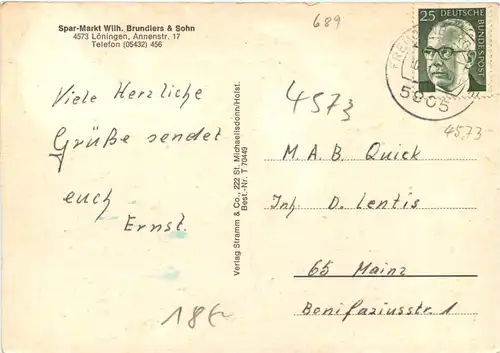 Spar-Markt Wilh. Brundiers & Sohn
4573 Löningen, Annenstr. 17
Telefon (05432) 456
689
25 DEUTSCHE
BUNDESPOST
5905
Viele Herzliche
Grüße sendet
euch
Ernst.
4573
4573
M. A. B. Quick
Inh. D. Lentis
65 Mainz
Bonifaziusstr. 1
Verlag Stramm & Co., 222 St. Michaelisdonn/Holst.
Best.-Nr. T 70449
18€